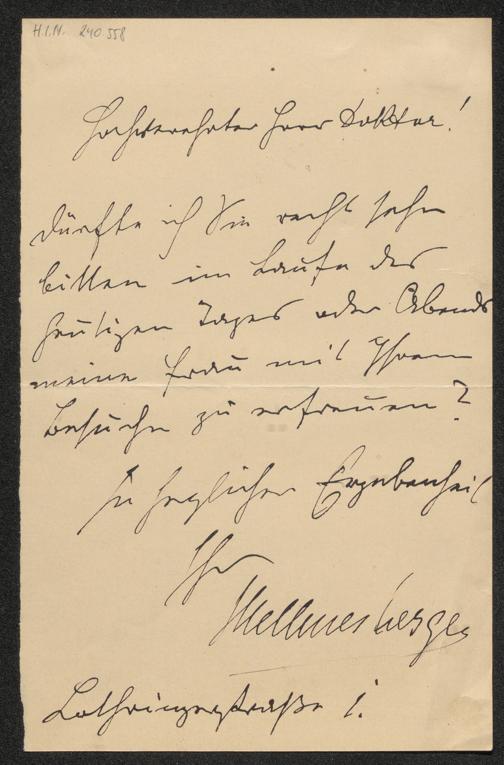 H.I.N. 240.558
Hochverehrter Herr Doktor!
Dürfte ich Sie recht sehr
bitten im Laufe des
heutigen Tages oder Abends
meine Frau mit Ihrem
Besuche zu erfreuen?
In herzlicher Ergebenheit
Ihr
Hellmesberger
Lothringerstraße 1.